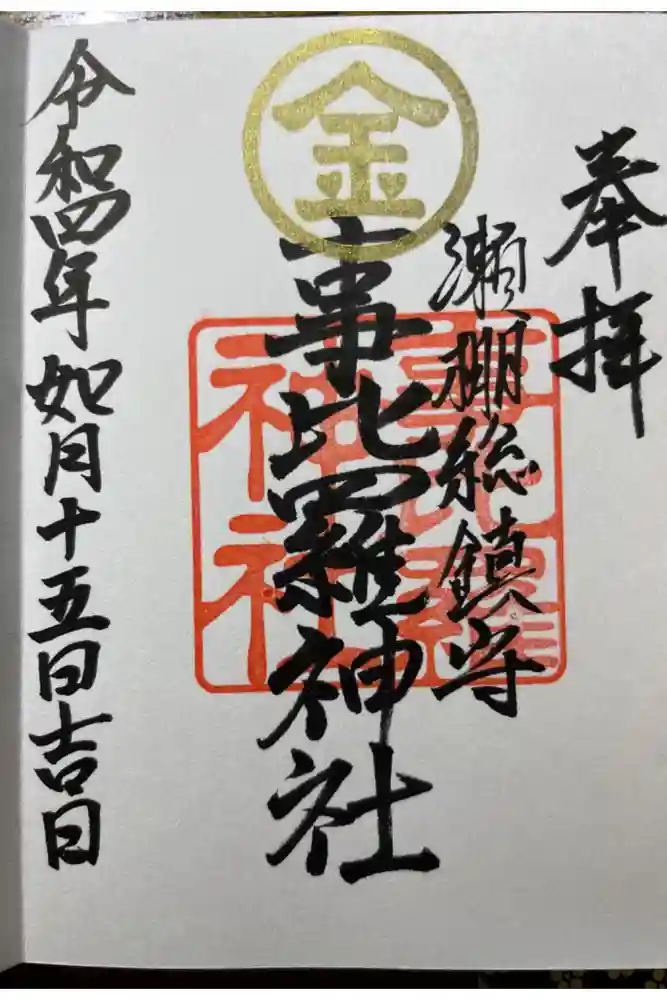 奉拝
瀬棚総鎮守
金
事比羅神社
事比羅
神社
令和四年如月十五日吉日